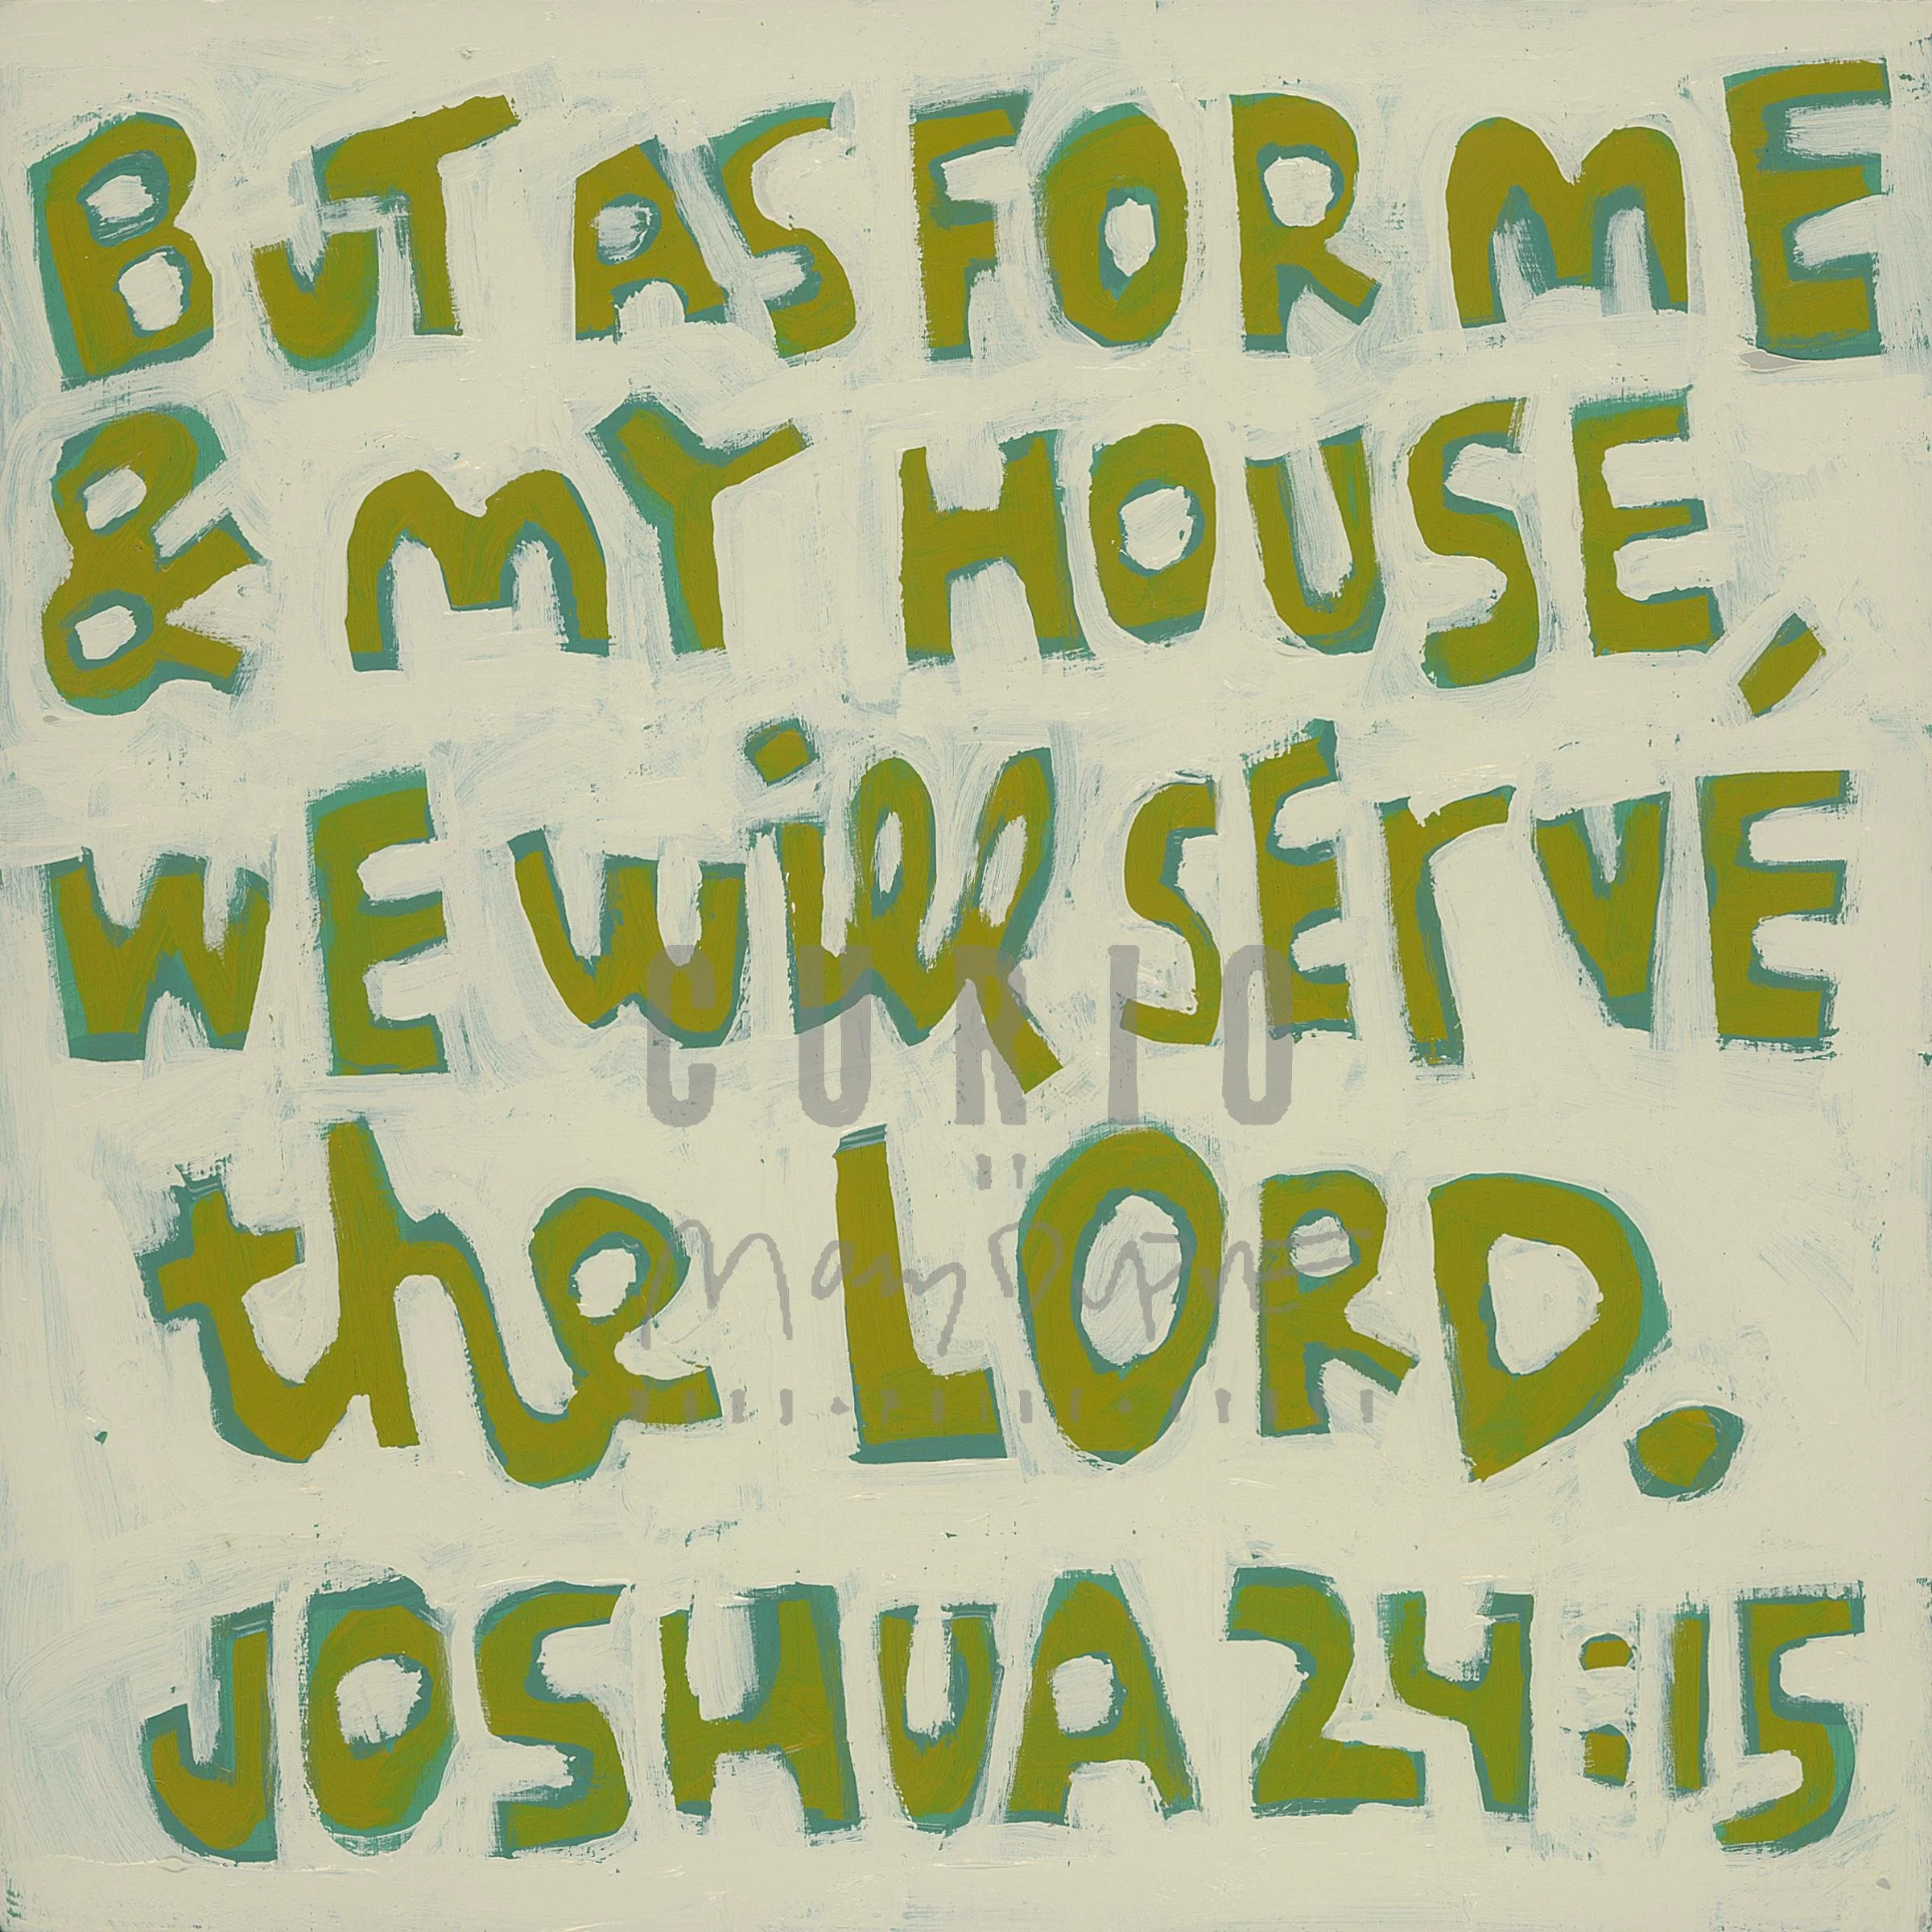 BUT AS FOR ME
& MY HOUSE,
WE will SErVE
the LORD.
JOSHUA 24:15
CURIO